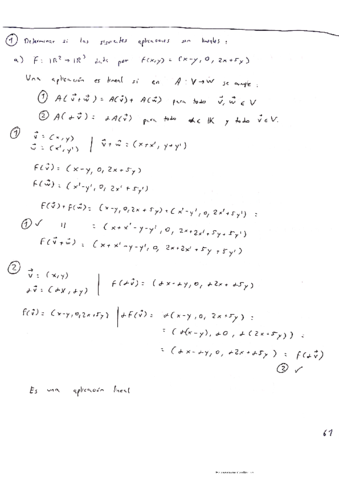 ① Determinar si las siguientes aplicaciones son lineales:
a) F: ℝ² → ℝ³ dada por f(x,y) = (x-y, 0, 2x+5y)
Una aplicación es lineal si en A: V→W se cumple:
① A(v⃗+w⃗) = A(v⃗) + A(w⃗) para todo v⃗, w⃗ ∈ V
② A(αv⃗) = αA(v⃗) para todo α∈ 𝕂 y todo v⃗∈V.
① v⃗ = (x,y) | v⃗+w⃗ = (x+x', y+y')
w⃗ = (x',y')
F(v⃗) = (x-y, 0, 2x+5y)
F(w⃗) = (x'-y', 0, 2x'+5y')
F(v⃗)+F(w⃗) = (x-y, 0, 2x+5y) + (x'-y', 0, 2x'+5y') =
① ✓ = (x+x'-y-y', 0, 2x+2x'+5y+5y')
F(v⃗+w⃗) = (x+x'-y-y', 0, 2x+2x'+5y+5y')
② v⃗ = (x,y)
αv⃗ = (αx, αy) | f(αv⃗) = (αx-αy, 0, α2x+α5y)
f(v⃗) = (x-y, 0, 2x+5y) | αF(v⃗) = α(x-y, 0, 2x+5y) =
= (α(x-y), α0, α(2x+5y)) =
= (αx-αy, 0, α2x+α5y) = f(αv⃗)
② ✓
Es una aplicación lineal
61